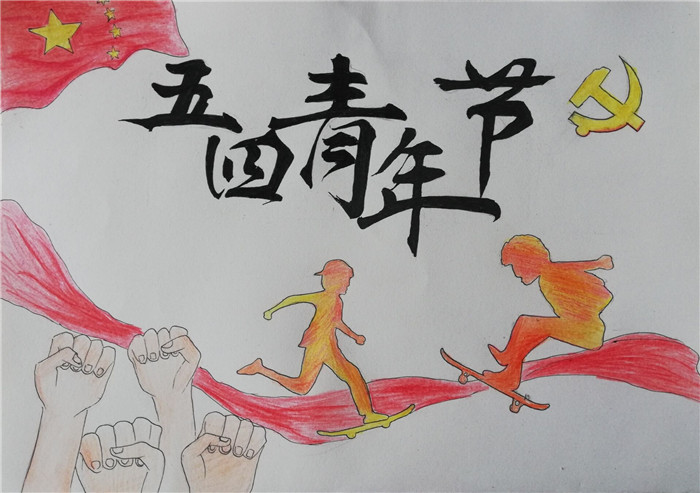 五四青年节